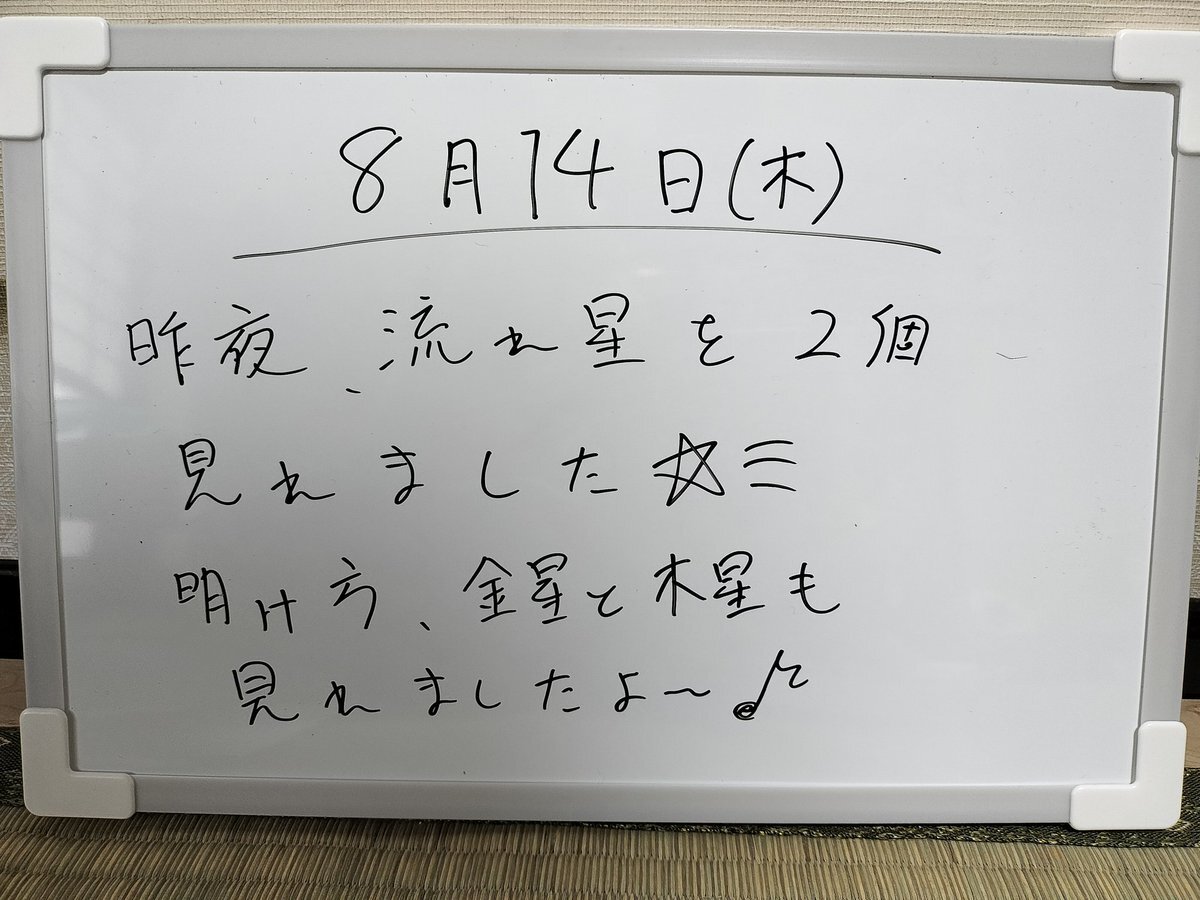 8月14日(木)
昨夜、流れ星を2個
見れました☆三
明け方、金星と木星も
見れましたよ～♪